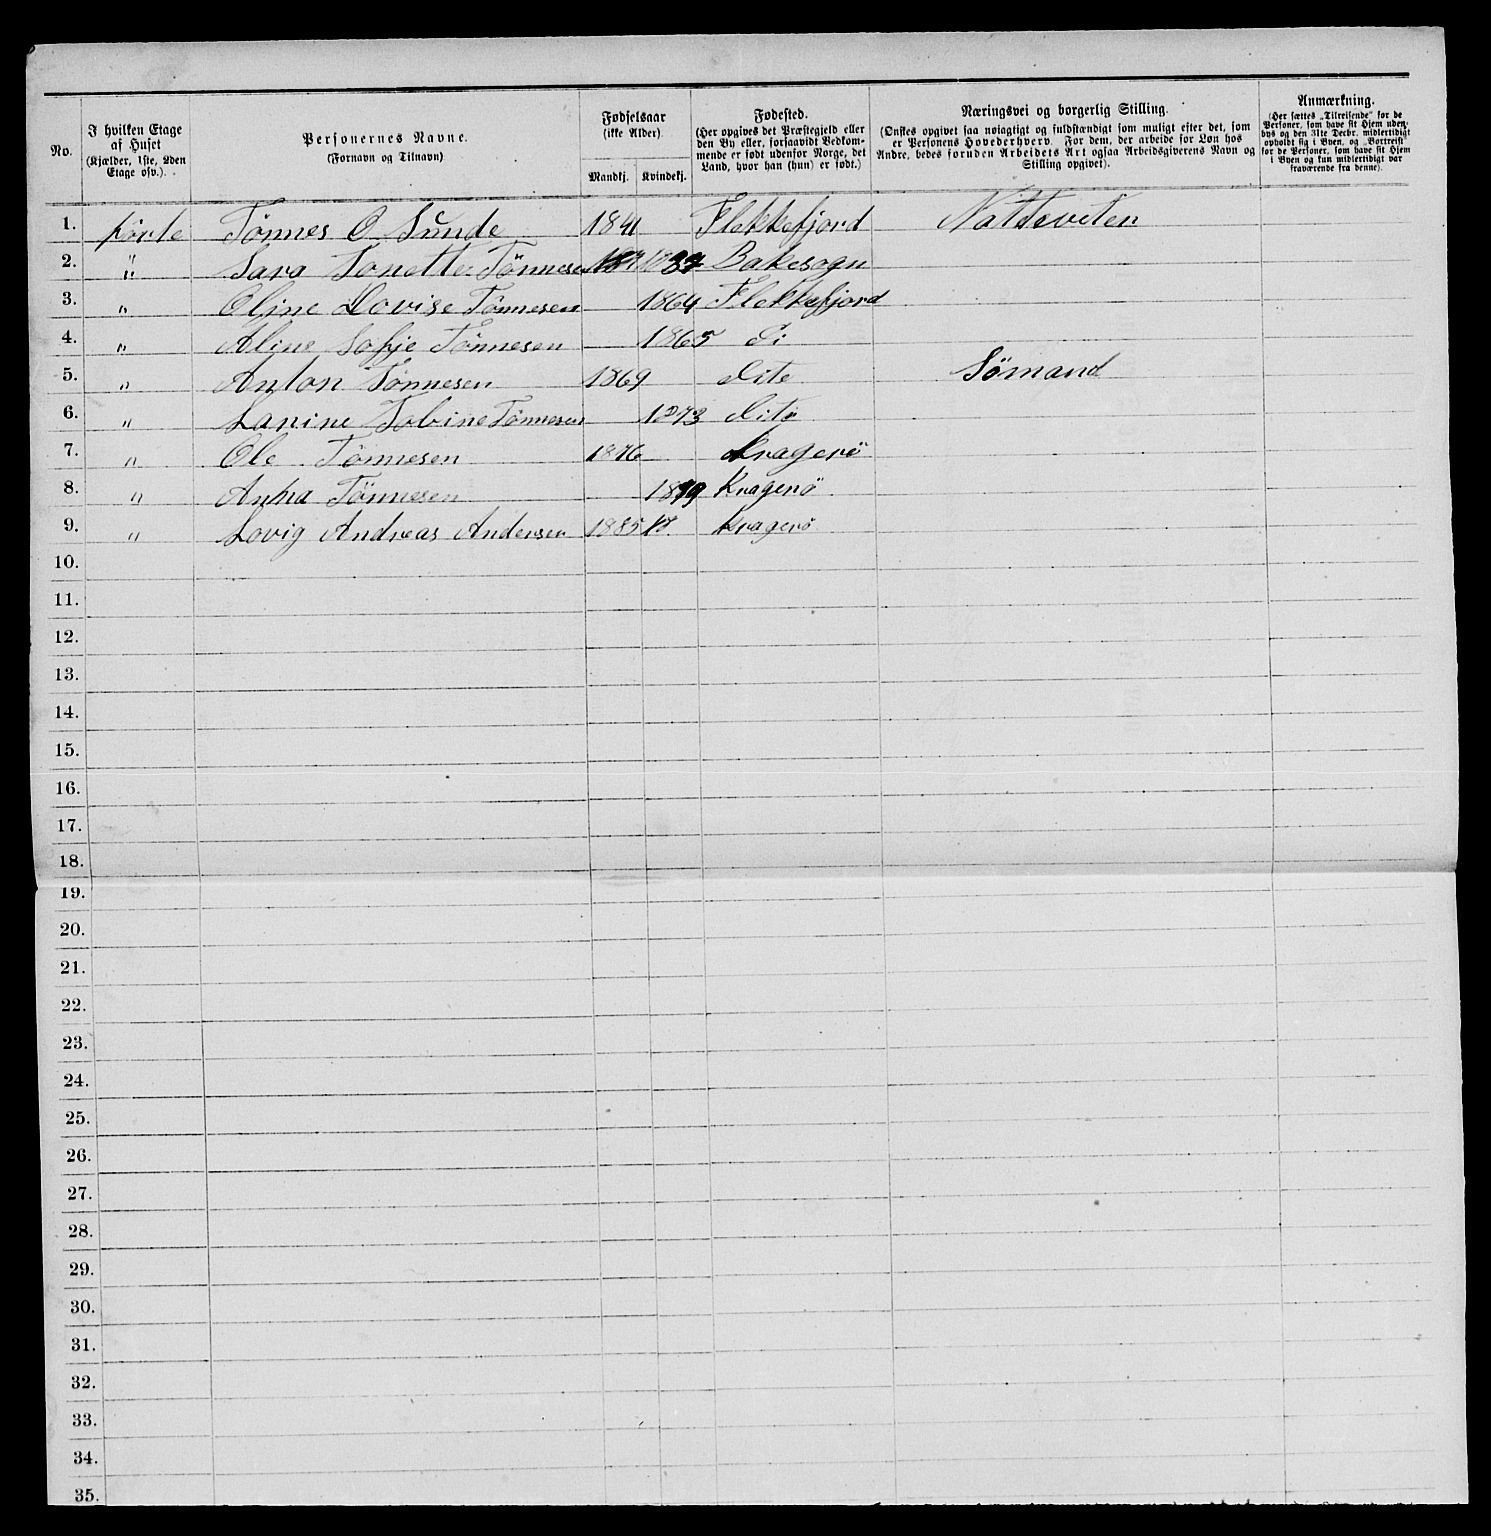 No.
I hvilken Etage
af Huset
(Kjælder, 1ste, 2den
Etage osv.).
Personernes Navne.
(Fornavn og Tilnavn)
Fødselsaar
(ikke Alder).
Mandkj. Kvindekj.
Fødested.
(Her opgives det Præstegjeld eller
den By eller, forsaavidt Vedkom-
mende er født udenfor Norge, det
Land, hvor han (hun) er født.)
Næringsvei og borgerlig Stilling.
(Ønskes opgivet saa nøiagtigt og fuldstændigt som muligt efter det, som
er Personens Hovederhverv. For dem, der arbeide for Løn hos
Andre, bedes foruden Arbeidets Art ogsaa Arbeidsgiverens Navn og
Stilling opgivet).
Anmærkning.
(Her sættes „Tilreisende" for de
Personer, som have sit Hjem uden-
bys og den 31te Decbr. midlertidigt
opholdt sig i Byen, og „Bortreist"
for de Personer, som have sit Hjem
i Byen og kun midlertidigt var
fraværende fra denne).
1. förste Tönnes O Sunde 1841 Flekkefjord
2. " Sara Tonette Tönnesen Bakesogn
3. " Oline Lovise Tönnesen 1864 Flekkefjord
4. " Aline Sofje Tönnesen 1865 Di
5. " Anton Tönnesen 1869 Dito Sömand
6. " Lanine Tobine Tönnesen 1873 Dito
7. " Ole Tönnesen 1876 Kragerö
8. " Anna Tönnesen 1879 Kragerö
9. " Lovig Andreas Andersen 1885 Kragerö
10.
11.
12.
13.
14.
15.
16.
17.
18.
19.
20.
21.
22.
23.
24.
25.
26.
27.
28.
29.
30.
31.
32.
33.
34.
35.